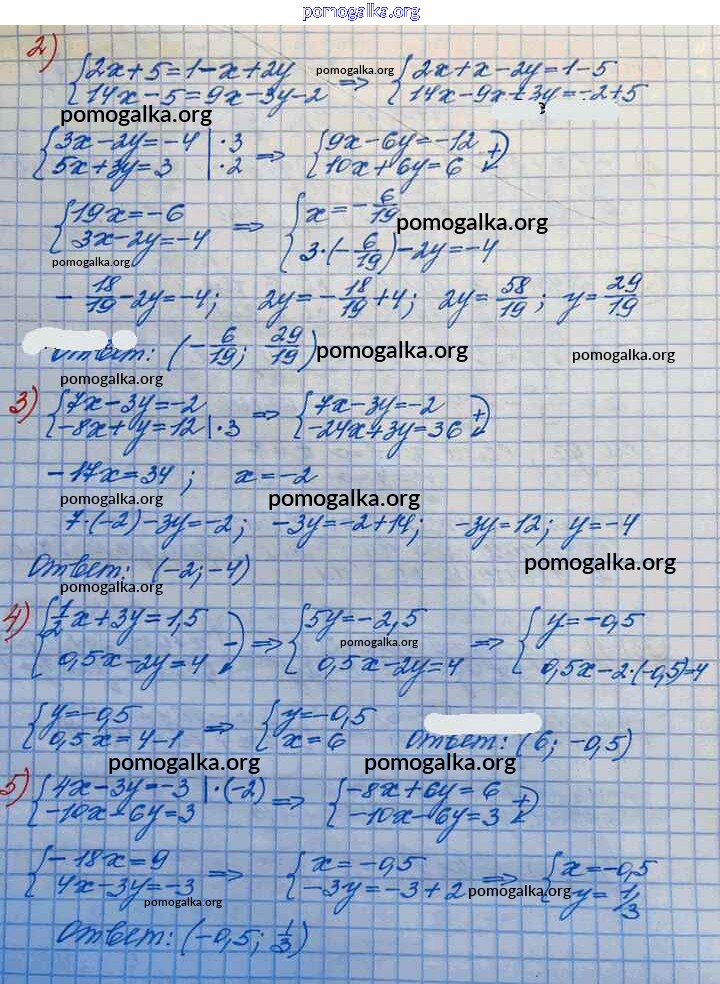 pomogalka.org
2) {2x+5=1-x+2y pomogalka.org => {2x+x-2y=1-5
{14x-5=9x-3y-2 {14x-9x+3y=-2+5
pomogalka.org
{3x-2y=-4 |·3 => {9x-6y=-12
{5x+3y=3 |·2 {10x+6y=6 +
{19x=-6 => {x=-6/19
{3x-2y=-4 {3·(-6/19)-2y=-4
pomogalka.org
pomogalka.org
-18/19-2y=-4; 2y=-18/19+4; 2y=58/19; y=29/19
Ответ: (-6/19; 29/19) pomogalka.org pomogalka.org
pomogalka.org
3) {7x-3y=-2 => {7x-3y=-2
{-8x+y=12 |·3 {-24x+3y=36 +
-17x=34; x=-2
pomogalka.org pomogalka.org
7·(-2)-3y=-2; -3y=-2+14; -3y=12; y=-4
Ответ: (-2; -4) pomogalka.org
pomogalka.org
4) {1/2x+3y=1,5 - => {5y=-2,5 => {y=-0,5
{0,5x-2y=4 {0,5x-2y=4 {0,5x-2·(-0,5)=4
pomogalka.org
{y=-0,5 => {y=-0,5
{0,5x=4-1 {x=6 Ответ: (6; -0,5)
pomogalka.org pomogalka.org
5) {4x-3y=-3 |·(-2) => {-8x+6y=6
{-10x-6y=3 {-10x-6y=3 +
{-18x=9 => {x=-0,5 => {x=-0,5
{4x-3y=-3 {-3y=-3+2 pomogalka.org {y=1/3
pomogalka.org
Ответ: (-0,5; 1/3)